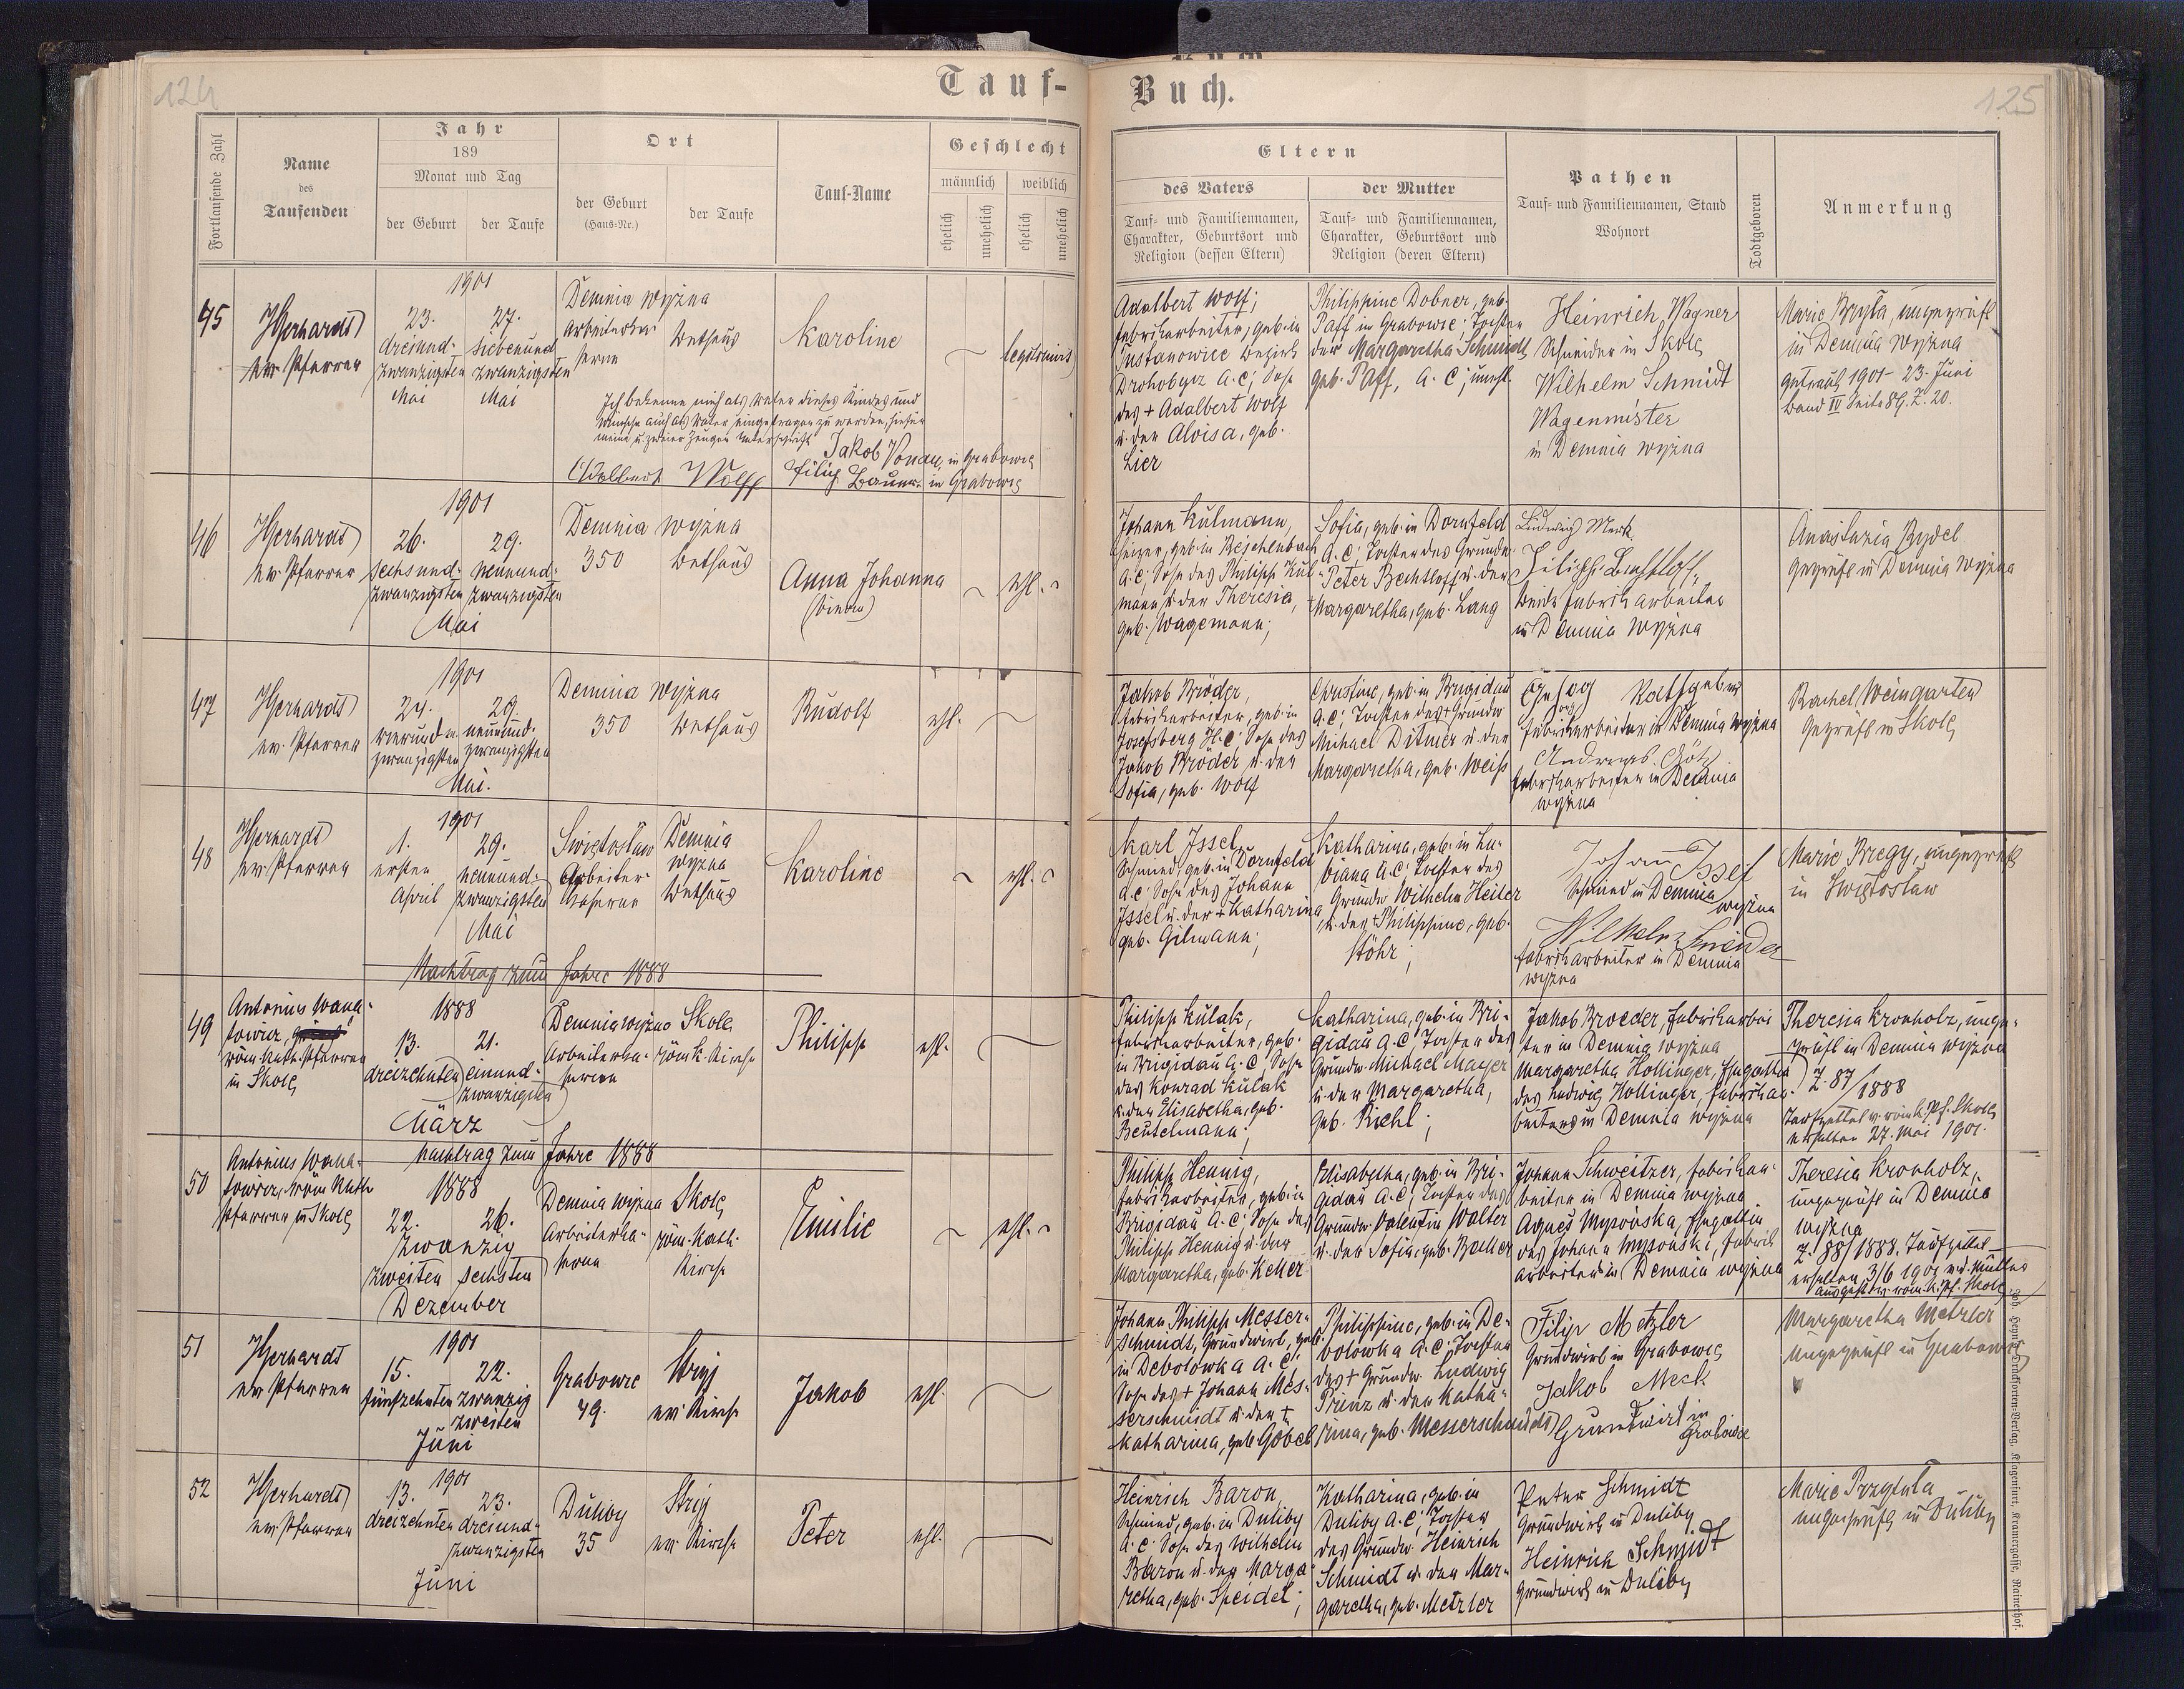 124
Tauf-
Fortlaufende Zahl
Name
des
Taufenden
Jahr
189
Monat und Tag
der Geburt
der Taufe
Ort
der Geburt
(Haus-Nr.)
der Taufe
Tauf-Name
Geschlecht
männlich
weiblich
ehelich
unehelich
ehelich
unehelich
Buch.
125
Eltern
des Vaters
Tauf- und Familiennamen,
Charakter, Geburtsort und
Religion (dessen Eltern)
der Mutter
Tauf- und Familiennamen,
Charakter, Geburtsort und
Religion (deren Eltern)
Pathen
Tauf- und Familiennamen, Stand
Wohnort
Todtgeboren
Anmerkung
45
ev. Pfarrer
1901
23.
dreiund-
zwanzigsten
Mai
27.
siebenund
zwanzigsten
Mai
Demnia wyżna
Arbeiterka-
serne
Bethaus
Karoline
legitimirt
Ich bekenne mich als Vater dieses Kindes und
wünsche auch als Vater eingetragen zu werden, hiefür
meine u. zweier Zeugen Unterschrift
Jakob Vonau, in Grabowce
Adalbert Wolff
in Grabowce
Adalbert Wolf;
Fabriksarbeiter, geb. in
Bezirk
Drohobycz A. C; Sohn
des + Adalbert Wolf
u. der Aloisa, geb.
Lier
Philippine Dobner, geb.
Paff in Grabowce; Tochter
der Margaretha Schmidt
geb. Paff, A. C;
Heinrich Wagner
Schneider in Skole
Wilhelm Schmidt
Wagenmister
in Demnia wyżna
Marie Bryła, ungeprüft
in Demnia wyżna
getraut 1901 23. Juni
Band IV Seite 89. Z. 20.
46
ev. Pfarrer
1901
26.
sechsund-
zwanzigsten
29.
neunund-
zwanzigsten
Mai
Demnia wyżna
350
Bethaus
Anna Johanna
ehl.
Johann Kulmann,
Heizer, geb. in Reichenbach
A. C; Sohn des Philipp Kul-
mann u. der Theresia,
geb. Wagemann;
Sofia, geb. in Dornfeld
A. C; Tochter des Grundw.
Peter Bechtloff u. der
Margaretha, geb. Lang
Ludwig Merk
beide Fabriksarbeiter
in Demnia wyżna
Anastazia Rydel
geprüft in Demnia wyżna
47
ev. Pfarrer
1901
24.
vierundzwanzigsten
29.
neunund-
zwanzigsten
Mai.
Demnia wyżna
350
Bethaus
Rudolf
ehl.
Jakob Bröder,
Fabriksarbeiter, geb. in
Josefsberg H. C; Sohn des
Jakob Bröder u. der
Sofia, geb. Wolf
Christine, geb. in Brigidau
A. C; Tochter des + Grundw
Michael Ditmer u. der
Margaretha, geb. Weiss
Fabriksarbeiter in Demnia wyżna
Fabriksarbeiter in Demnia
wyżna
Rachel Weingarten
geprüft in Skole
48
ev. Pfarrer
1901
1.
ersten
April
29.
neunund-
zwanzigsten
Mai
Świętosław
Arbeiter-
kaserne
Demnia
wyżna
Bethaus
Karoline
ehl.
Karl Issel,
Schmied, geb. in Dornfeld
A. C; Sohn des Johann
Issel u. der + Katharina
geb. Gilmann;
Katharina, geb. in Lu-
biana A. C; Tochter des
Grundw. Wilhelm Heiser
u. der + Philippine, geb.
Stöhr;
Johann Issel
Schmied in Demnia wyżna
Fabriksarbeiter in Demnia
wyżna
Marie Bregy, ungeprüft
in Świętosław
Nachtrag zum Jahre 1888
49
röm. kath. Pfarrer
in Skole
1888
13.
dreizehnten
21.
einund-
zwanzigsten
März
Demnia wyżna
Arbeiterka-
serne
Skole
röm. k. Kirche
Philipp
ehl.
Philipp Kulak,
Fabriksarbeiter, geb.
in Brigidau A. C; Sohn
des Konrad Kulak
u. der Elisabetha, geb.
Beutelmann;
Katharina, geb. in Bri-
gidau A. C; Tochter des
Grundw. Michael Mayer
u. der Margaretha,
geb. Riehl;
Jakob Broeder, Fabriksarbei
ter in Demnia wyżna
Margaretha Hollinger, Ehegattin
des Ludwig Hollinger, Fabriksar-
beiters in Demnia wyżna
Theresia Kronholz, unge-
prüft in Demnia wyżna
Z. 87/1888
Taufzettel v. röm. k. Pf. Skole
erhalten 27. Mai 1901.
Nachtrag zum Jahre 1888
50
Pfarrer in Skole
1888
22.
26.
zwanzig
zweiten
sechsten
Dezember
Demnia wyżna
Arbeiterka-
serne
Skole
röm. kath.
Kirche
Emilie
ehl.
Philipp Hennig,
Fabriksarbeiter, geb. in
Brigidau A. C; Sohn des
Philipp Hennig u. der
Margaretha, geb. Keller
Elisabetha, geb. in Bri-
gidau A. C; Tochter des
Grundw. Valentin Walter
u. der Sofia, geb.
Johann Schweitzer, Fabriksar-
beiter in Demnia wyżna
Agnes Mysońska, Ehegattin
des Johann Mysoński, Fabriks
arbeiters in Demnia wyżna
Theresia Kronholz,
ungeprüft in Demnia
wyżna
Z. 88/1888. Taufzettel
erhalten 3/6 1901 v. d. Mutter
ausgest. v. röm. k. Pf. Skole
51
ev. Pfarrer
1901
15.
fünfzehnten
22.
zwanzig
zweiten
Juni
Grabowce
49.
Stryj
ev. Kirche
Jakob
ehl.
Johann Philipp Messer-
schmidt, Grundwirt, geb.
in Debolowka A. C.
Sohn des + Johann Mes-
serschmidt u. der +
Katharina, geb. Göbel
Philippine, geb. in De-
bolowka A. C; Tochter
des + Grundw. Ludwig
Prinz u. der Katha-
rina, geb. Messerschmidt
Filip Metzler
Grundwirt in Grabowce
Jakob Meck
Grundwirt in
Grabowce
Margaretha Metzler
ungeprüft in Grabowce
52
ev. Pfarrer
1901
13.
dreizehnten
23.
dreiund-
zwanzigsten
Juni
Duliby
35
Stryj
ev. Kirche
Peter
ehl.
Heinrich Baron
Schmied, geb. in Duliby
A. C. Sohn des Wilhelm
Baron u. der Marga-
retha, geb. Speidel;
Katharina, geb. in
Duliby A. C; Tochter
des Grundw. Heinrich
Schmidt u. der Mar-
garetha, geb. Metzler
Peter Schmidt
Grundwirt in Duliby
Heinrich Schmidt
Grundwirt in Duliby
Marie Przytuła
ungeprüft in Duliby
Joh. Heyn's Drucksorten-Verlag, Klagenfurt, Kramergasse, Rainerhof.